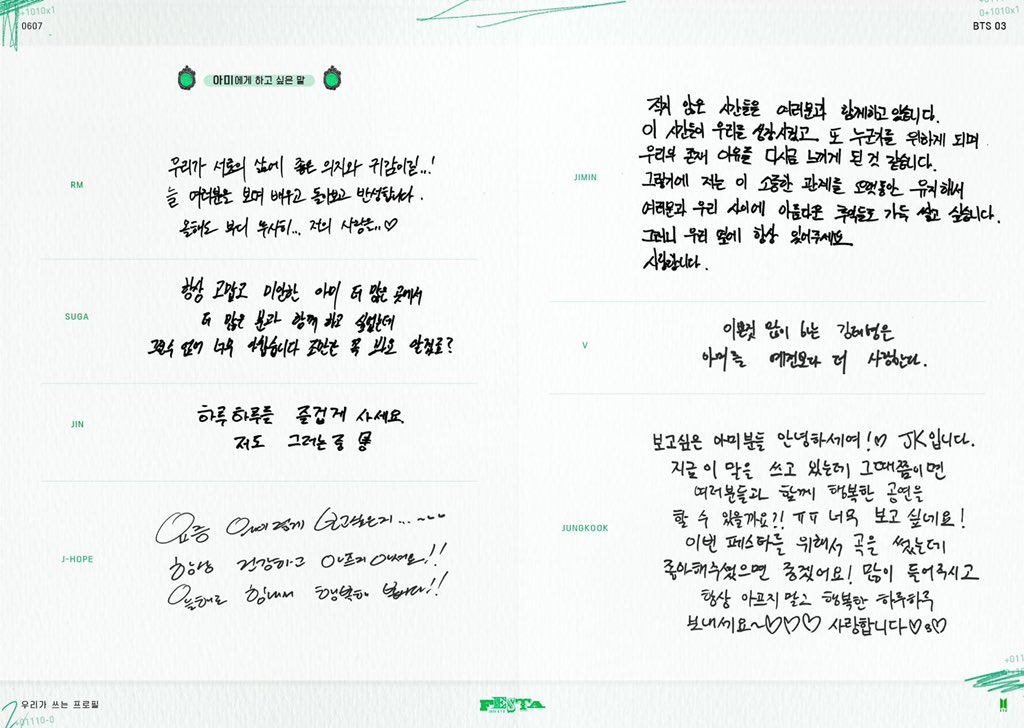 +1010x1
0607
0+1010x1
BTS 03
아미에게 하고 싶은 말
RM
우리가 서로의 삶에 좋은 의지와 귀감이길..!
늘 여러분을 보며 배우고 돌아보고 반성합니다.
올해도 부디 무사히... 저의 사랑을..♡
SUGA
항상 고맙고 미안한 아미 더 많은 곳에서
더 많은 분과 함께 하고 싶었는데
그럴수 없어 너무 아쉽습니다 조만간 꼭 봐요 알겠죠?
JIN
하루하루를 즐겁게 사세요.
저도 그러는 중
J-HOPE
요즘 보고싶은지...~~
항상 건강하고 아프지 마세요!!
올해도 힘내서 행복해 봅시다!!
JIMIN
적지 않은 시간들을 여러분과 함께하고 있습니다.
이 시간들이 우리를 성장시켰고 또 누군가를 위하게 되며
우리의 존재 이유를 다시금 느끼게 된 것 같습니다.
그렇기에 저는 이 소중한 관계를 오랫동안 유지해서
여러분과 우리 사이에 아름다운 추억들로 가득 쌓고 싶습니다.
그러니 우리 옆에 항상 있어주세요
사랑합니다.
V
이쁜것 많이 보는 김태형은
아미를 예전보다 더 사랑한다.
JUNGKOOK
보고싶은 아미분들 안녕하세여!♡ JK입니다.
지금 이 말을 쓰고 있는데 그때쯤이면
여러분들과 함께 행복한 공연을
할 수 있을까요?! ㅠㅠ 너무 보고 싶네요!
이번 페스타를 위해서 곡을 썼는데
좋아해주셨으면 좋겠어요! 많이 들어주시고
항상 아프지 말고 행복한 하루하루
보내세요~♡♡♡ 사랑합니다♡3♡
+011
우리가 쓰는 프로필
+01110-0
FESTA
BTS